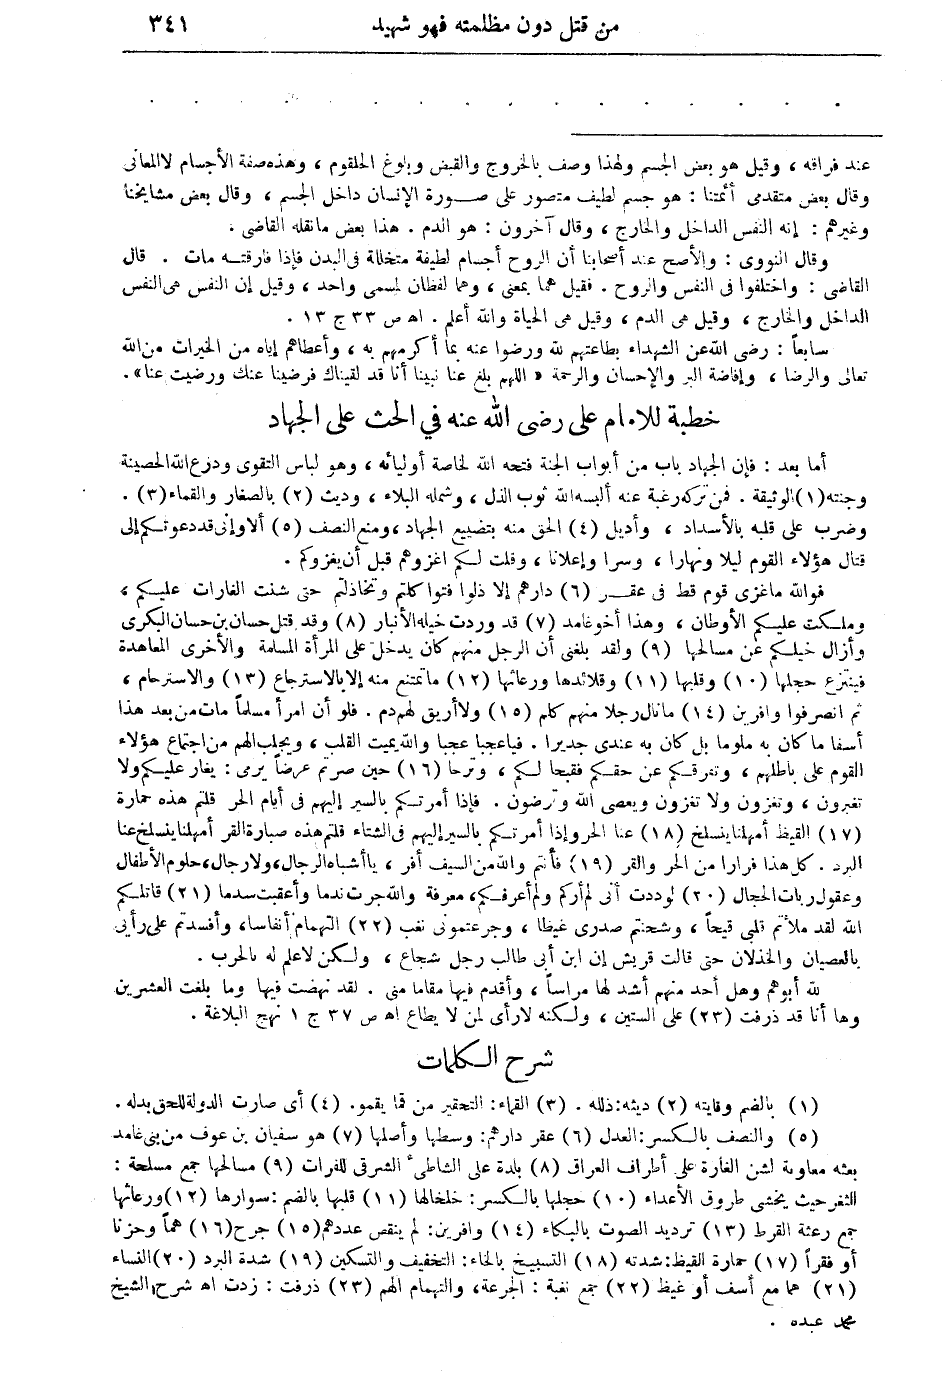 من قتل دون مظلمته فهو شهيد ٣٤١
عند فراقه ، وقيل هو بعض الجسم ولهذا وصف بالخروج والقبض وبلوغ الحلقوم ، وهذه صفة الأجسام لا المعانى
وقال بعض متقدمى أئمتنا : هو جسم لطيف متصور على صورة الإنسان داخل الجسم ، وقال بعض مشايخنا
وغيرهم : إنه النفس الداخل والخارج ، وقال آخرون : هو الدم . هذا بعض مانقله القاضى .
وقال النووى : والأصح عند أصحابنا أن الروح أجسام لطيفة متخللة فى البدن فإذا فارقته مات . قال
القاضى : واختلفوا فى النفس والروح . فقيل هما بمعنى ، وهما لفظان لمسمى واحد ، وقيل إن النفس هى النفس
الداخل والخارج ، وقيل هى الدم ، وقيل هى الحياة والله أعلم . اه ص ٣٣ ج ١٣ .
سابعاً : رضى الله عن الشهداء بطاعتهم لله ورضوا عنه بما أكرمهم به ، وأعطاهم إياه من الخيرات من الله
تعالى والرضا ، وإفاضة البر والإحسان والرحمة « اللهم بلغ عنا نبينا أنا قد لقيناك فرضينا عنك ورضيت عنا ».
خطبة للإمام على رضى الله عنه في الحث على الجهاد
أما بعد : فإن الجهاد باب من أبواب الجنة فتحه الله لخاصة أوليائه ، وهو لباس التقوى ودرع الله الحصينة
وجنته (١) الوثيقة . فمن تركه رغبة عنه ألبسه الله ثوب الذل ، وشمله البلاء ، وديث (٢) بالصغار والقماء (٣) .
وضرب على قلبه بالأسداد ، وأديل (٤) الحق منه بتضييع الجهاد ، ومنع النصف (٥) ألا وإنى قد دعوتكم إلى
قتال هؤلاء القوم ليلا ونهارا ، وسرا وإعلانا ، وقلت لكم اغزوهم قبل أن يغزوكم .
فوالله ماغزى قوم قط فى عقر (٦) دارهم إلا ذلوا فتواكلتم وتخاذلتم حتى شنت الغارات عليكم ،
وملكت عليكم الأوطان ، وهذا أخو غامد (٧) قد وردت خيله الأنبار (٨) وقد قتل حسان بن حسان البكرى
وأزال خيلكم عن مسالحها (٩) ولقد بلغنى أن الرجل منهم كان يدخل على المرأة المسلمة والأخرى المعاهدة
فينتزع حجلها (١٠) وقلبها (١١) وقلائدها ورعاثها (١٢) ماتمتنع منه إلا بالاسترجاع (١٣) والاسترحام ،
ثم انصرفوا وافرين (١٤) مانال رجلا منهم كلم (١٥) ولا أريق لهم دم . فلو أن امرأ مسلماً مات من بعد هذا
أسفا ما كان به ملوما بل كان به عندى جديرا . فياعجبا عجبا والله يميت القلب ، ويجلب الهم من اجتماع هؤلاء
القوم على باطلهم ، وتفرقكم عن حقكم فقبحا لكم ، وترحا (١٦) حين صرتم غرضاً يرمى : يغار عليكم ولا
تغيرون ، وتغزون ولا تغزون ويعصى الله وترضون . فإذا أمرتكم بالسير إليهم فى أيام الحر قلتم هذه حمارة
(١٧) القيظ أمهلنا ينسلخ (١٨) عنا الحر وإذا أمرتكم بالسير إليهم فى الشتاء قلتم هذه صبارة القر أمهلنا ينسلخ عنا
البرد . كل هذا فرارا من الحر والقر (١٩) فأنتم والله من السيف أفر ، يا أشباه الرجال، ولا رجال، حلوم الأطفال
وعقول ربات الحجال (٢٠) لوددت أنى لم أركم ولم أعرفكم، معرفة والله جرت ندما وأعقبت سدما (٢١) قاتلكم
الله لقد ملأتم قلبى قيحاً ، وشحنتم صدرى غيظا ، وجرعتمونى نغب (٢٢) التهمام أنفاسا، وأفسدتم على رأيى
بالعصيان والخذلان حتى قالت قريش إن ابن أبى طالب رجل شجاع ، ولكن لاعلم له بالحرب .
لله أبوهم وهل أحد منهم أشد لها مراساً ، وأقدم فيها مقاما منى . لقد نهضت فيها وما بلغت العشرين
وها أنا قد ذرفت (٢٣) على الستين ، ولكنه لارأى لمن لا يطاع اه ص ٣٧ ج ١ نهج البلاغة .
شرح الكلمات
(١) بالضم وقايته (٢) ديثه: ذلله . (٣) القماء: التحقير من قما يقمو. (٤) أى صارت الدولة للحق بدله .
(٥) والنصف بالكسر: العدل (٦) عقر دارهم: وسطها وأصلها (٧) هو سفيان بن عوف من بنى غامد
بعثه معاوية لشن الغارة على أطراف العراق (٨) بلدة على الشاطئ الشرقى للفرات (٩) مسالحها جمع مسلحة :
الثغر حيث يخشى طروق الأعداء (١٠) حجلها بالكسر: خلخالها (١١) قلبها بالضم : سوارها (١٢) ورعاثها
جمع رعثة القرط (١٣) ترديد الصوت بالبكاء (١٤) وافرين: لم ينقص عددهم (١٥) جرح (١٦) هماً وحزنا
أو فقراً (١٧) حمارة القيظ: شدته (١٨) التسبيخ بالخاء: التخفيف والتسكين (١٩) شدة البرد (٢٠) النساء
(٢١) هما مع أسف أو غيظ (٢٢) جمع نغبة : الجرعة، والتهمام الهم (٢٣) ذرفت : زدت اه شرح الشيخ
محمد عبده .